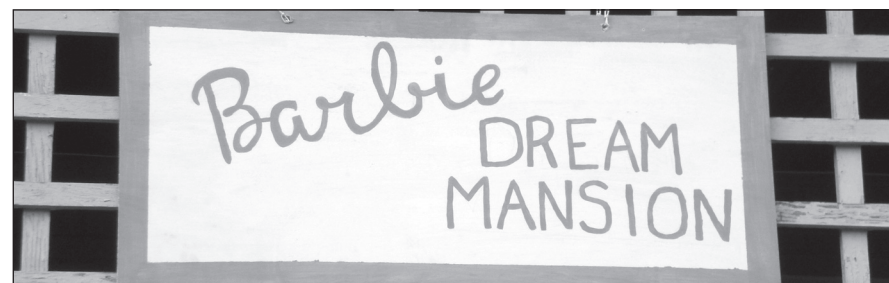 Barbie
DREAM
MANSION